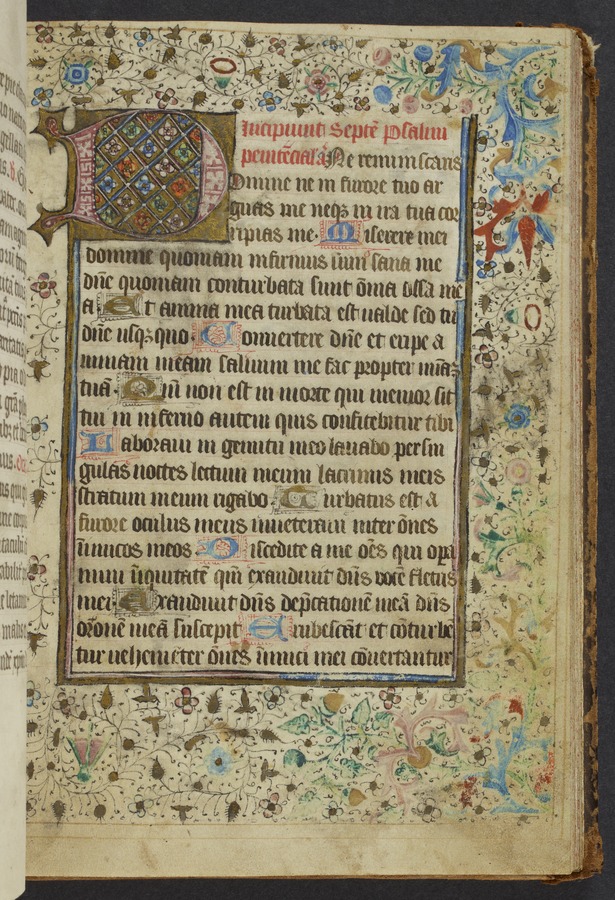 Incipiunt Septē psalmi
penitēciał ā Ne reminiscaris
Domine ne in furore tuo ar
guas me neqȝ in ira tua cor
ripias me. Miserere mei
domine quoniam infirmus sum sana me
dn̄e quoniam conturbata sunt om̄ia ossa me
a Et anima mea turbata est valde sed tu
dn̄e usqȝ quo. Conuertere dn̄e et eripe a
nimam meam saluum me fac propter mīāȝ
tuā. Qm̄ non est in morte qui memor sit
tui in inferno autem quis confitebitur tibi
Laboraui in gemitu meo lauabo per sin
gulas noctes lectum meum lacrimis meis
stratum meum rigabo. Turbatus est a
furore oculus meus inueteraui inter ōnes
inimicos meos. Discedite a me oēs qui opa
mini iniquitatē qm̄ exaudiuit dn̄s vocē fletus
mei Exaudiuit dn̄s dep̄cationē meā dn̄s
orōnē meā suscepit Erubescāt et cōturbē
tur uehemēter ōnes inimici mei cōuertantur